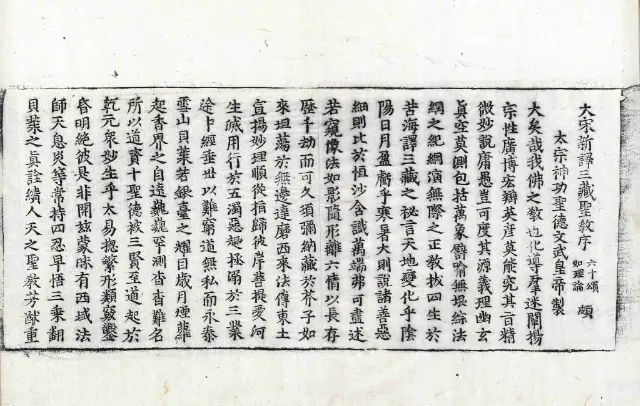 大宋新譯三藏聖教序 六十頌如理論 頗
太宗神功聖德文武皇帝製
大矣哉我佛之教也化導群迷闡揚
宗性廣博宏辯英彥莫能究其旨精
微妙說庸愚豈可度其源義理幽玄
真空莫測包括萬象譬喻無垠綜法
網之紀綱演無際之正教拔四生於
苦海譯三藏之秘言天地變化乎陰
陽日月盈虧乎寒暑大則說諸善惡
細則比於恒沙含識萬端弗可盡述
若窺像法如影隨形離六情以長存
歷千劫而可久須彌納藏於芥子如
來坦蕩於無邊達磨西來法傳東土
宣揚妙理順從指歸彼岸菩提愛河
生滅用行於五濁惡趣拯溺於三業
途中經垂世以難窮道無私而永泰
雪山貝葉若銀臺之耀目歲月煙蘿
起香界之自遠巍巍罕測杳杳難名
所以道資十聖德被三賢至道起於
乾元衆妙生乎太易揔繁形類竅鑿
昏明絕彼是非開茲蒙昧有西域法
師天息災等常持四忍早悟三乘翻
貝葉之真詮續人天之聖教芳猷重